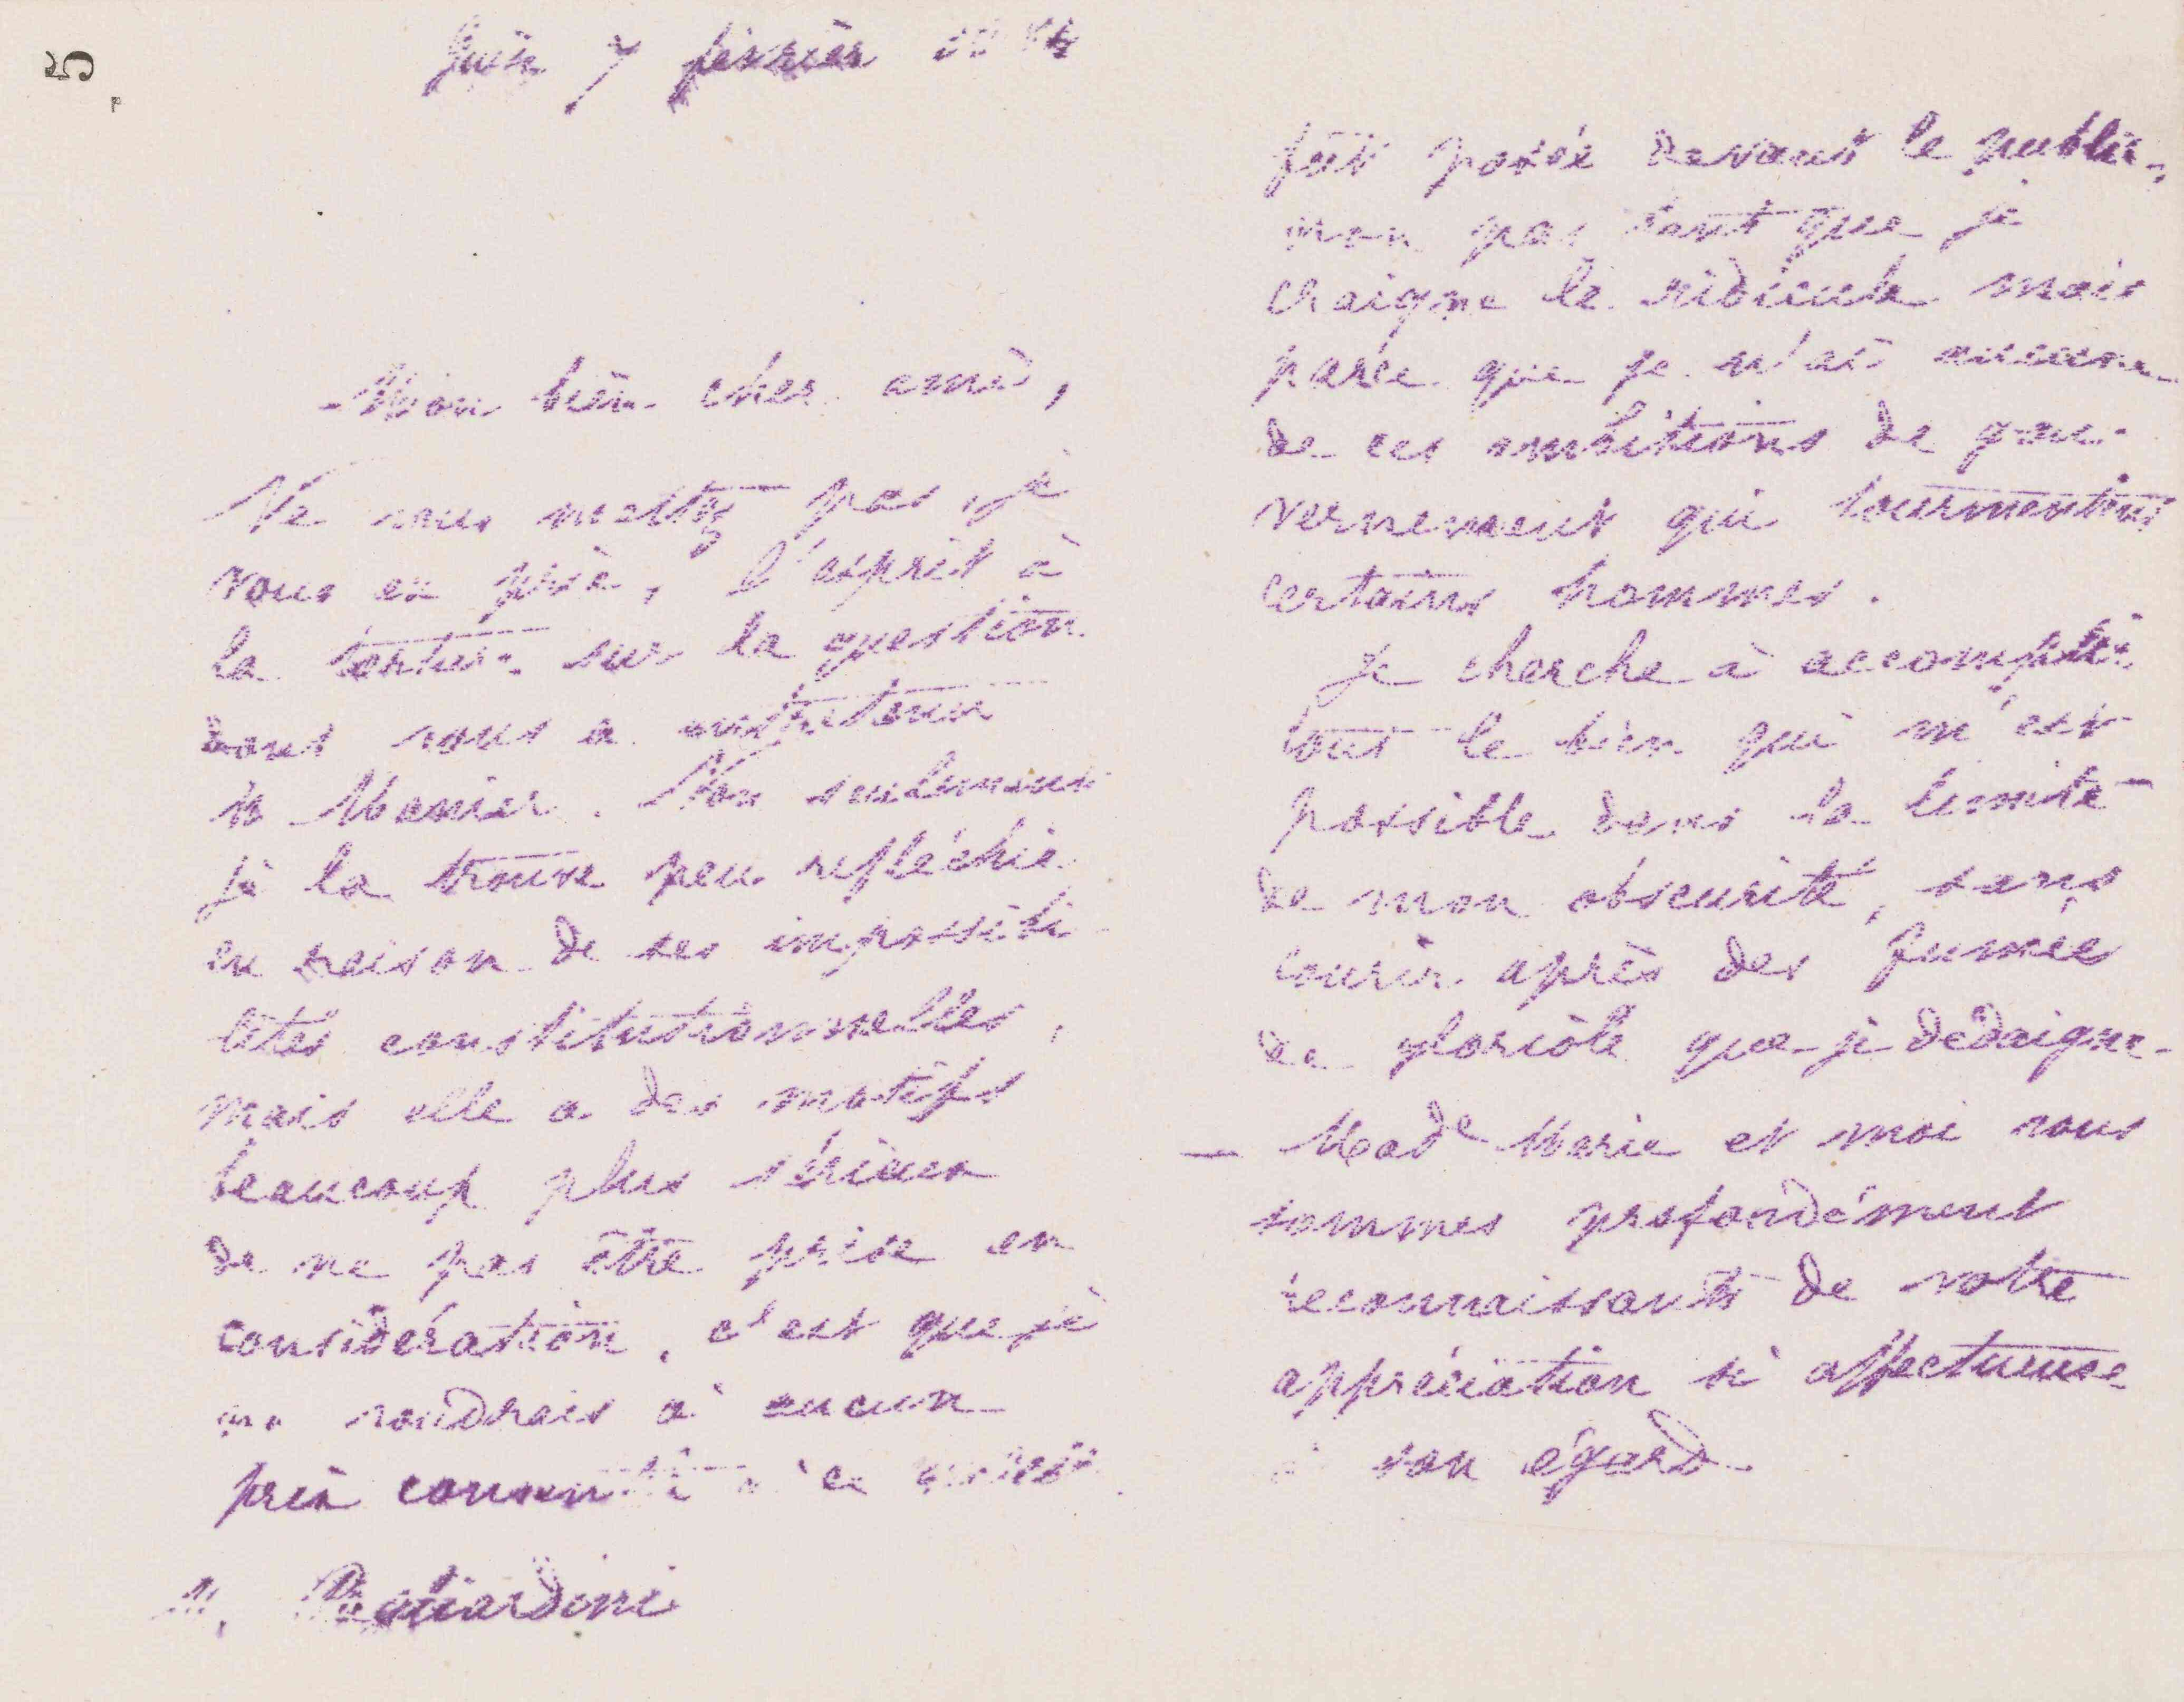 5
Guise 7 février
Mon bien cher ami,
Ne vous mettez pas, je
vous en prie, l'esprit à
la torture sur la question
dont vous a entretenu
M Manier. Non seulement
je la trouve peu refléchie
en raison de ses impossibi-
lités constitutionnelles,
mais elle a des motifs
beaucoup plus sérieux
de ne pas être prise en
considération, c'est que je
ne voudrais à aucun
prix consentir à ce qu'elle
M.
fût posée devant le public,
non pas tant que je
craigne le ridicule mais
parce que je n'ai aucune
de ces ambitions de gou-
vernement qui tourmentent
certains hommes.
Je cherche à accomplir
tout le bien qui m'est
possible dans la limite
de mon obscurité, sans
courir après des fumées
de gloriole que je dédaigne
— Made Marie et moi nous
sommes profondément
reconnaissants de votre
appréciation si affectueuse
à son égard